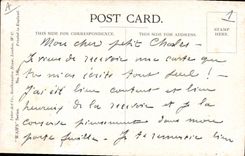 POST CARD.
THIS SPACE FOR CORRESPONDENCE.
THIS SIDE FOR ADDRESS.
Mon cher petit Charles
Je viens de recevoir une carte que
tu m'as écrit tout seul !
J'ai été bien content et bien
heureux de la recevoir et je la
conserve précieusement dans mon
porte feuille. Je te remercie bien